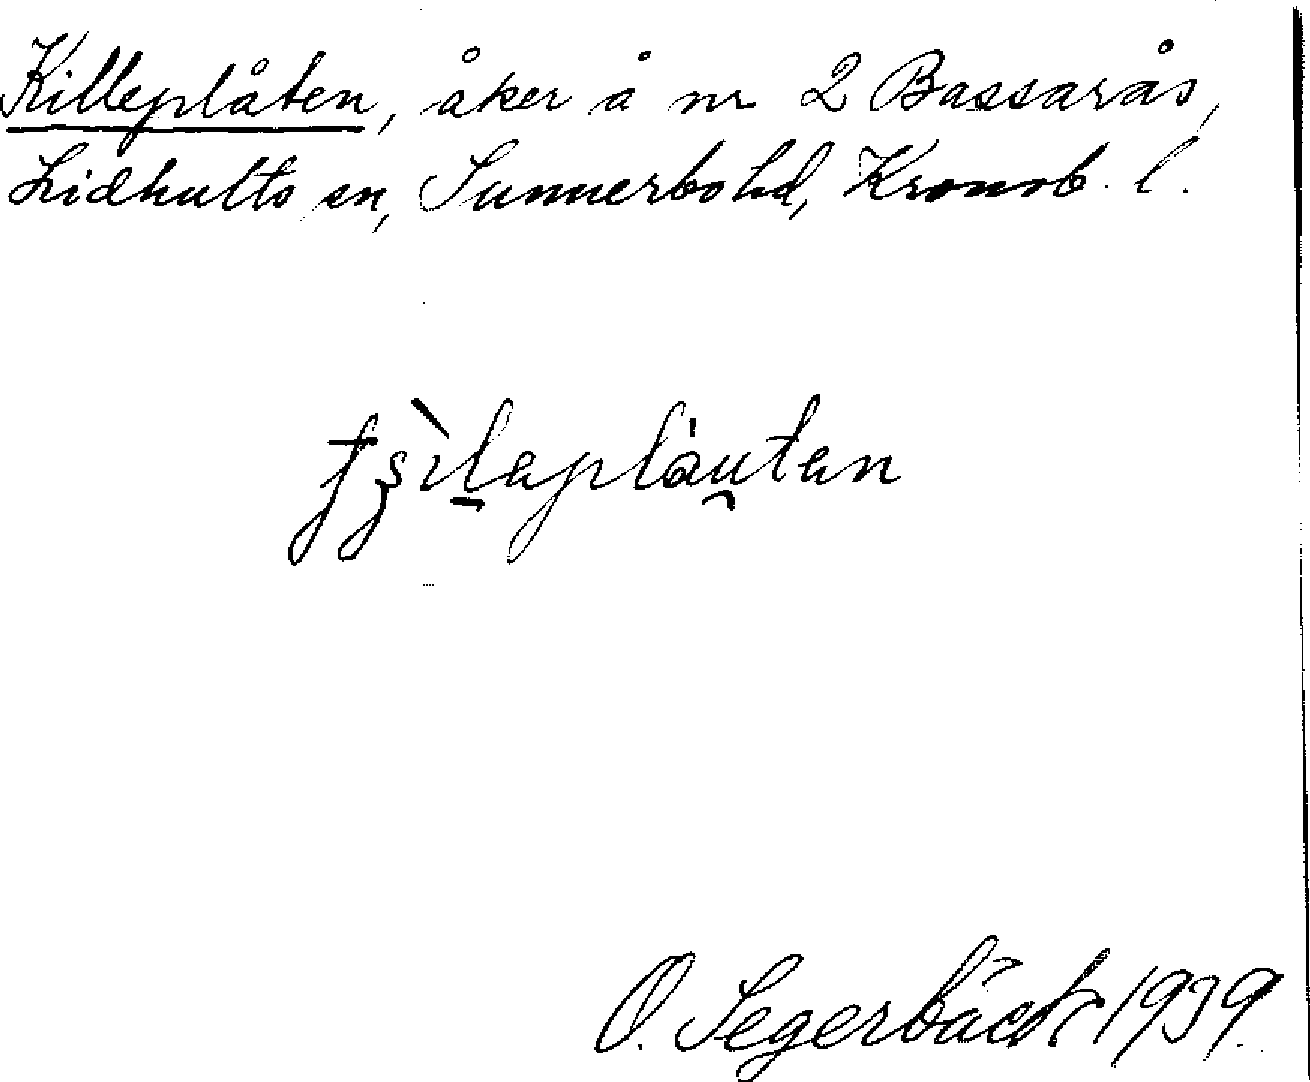 Killeplåten, åker å nr 2 Bassarås,
Lidhults sn, Sunnerbo hd, Kronob. l.
O. Segerbäck 1939.